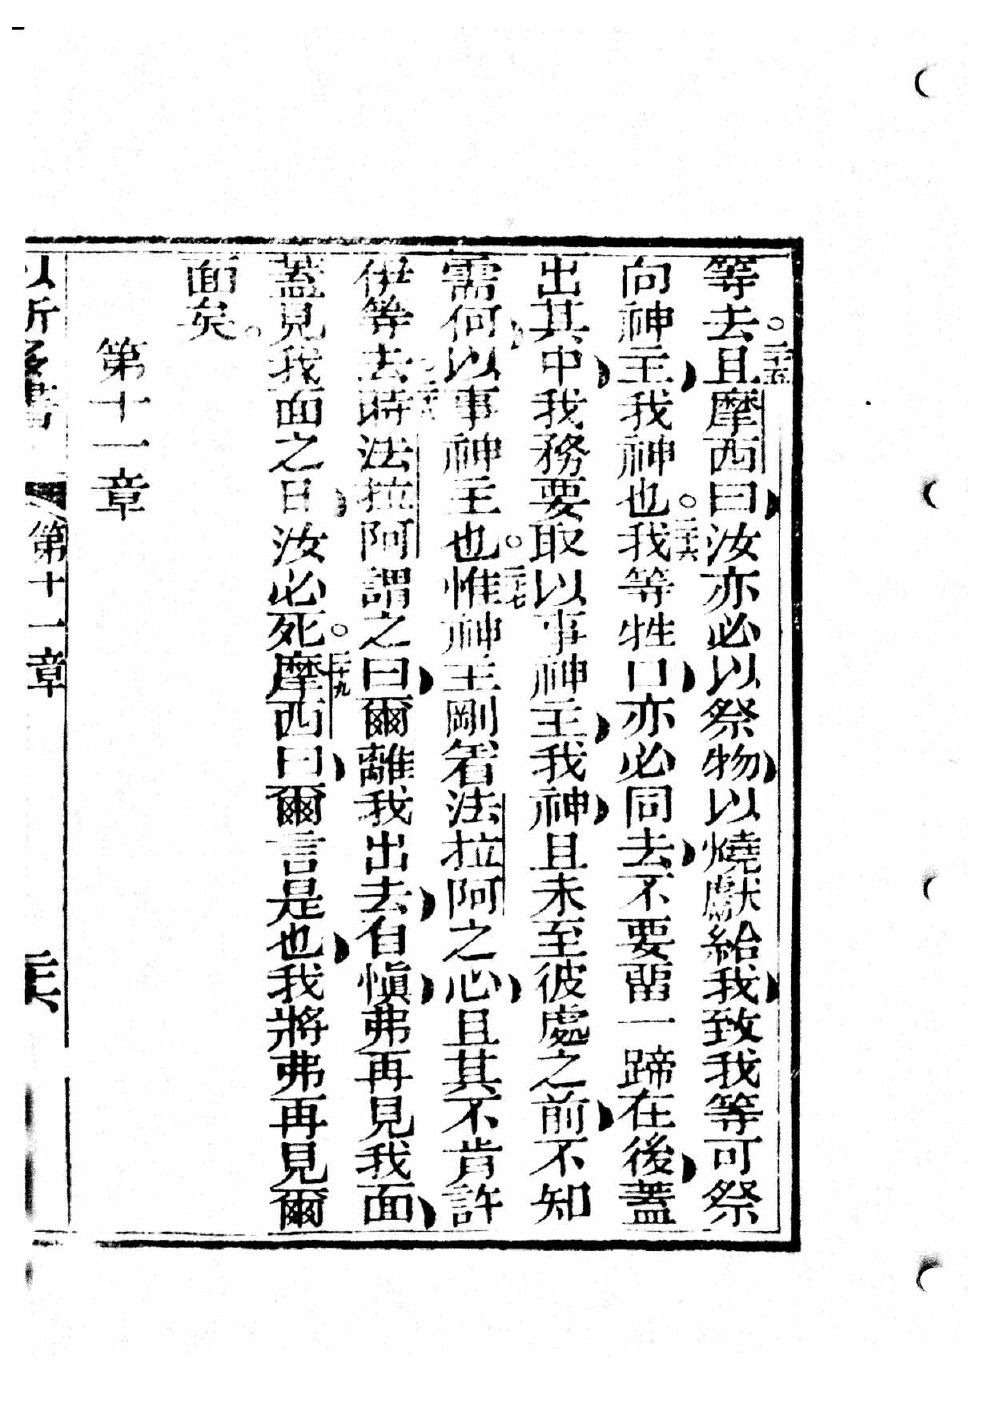 等去。二十五且摩西曰汝亦必以祭物以燒獻給我致我等可祭
向神主我神也。二十六我等牲口亦必同去不要留一蹄在後蓋
出其中我務要取以事神主我神且未至彼處之前不知
需何以事神主也。二十七惟神主剛着法拉阿之心且其不肯許
伊等去。二十八時法拉阿謂之曰爾離我出去自慎弗再見我面
蓋見我面之日汝必死。二十九摩西曰爾言是也我將弗再見爾
面矣。
第十一章
第十一章